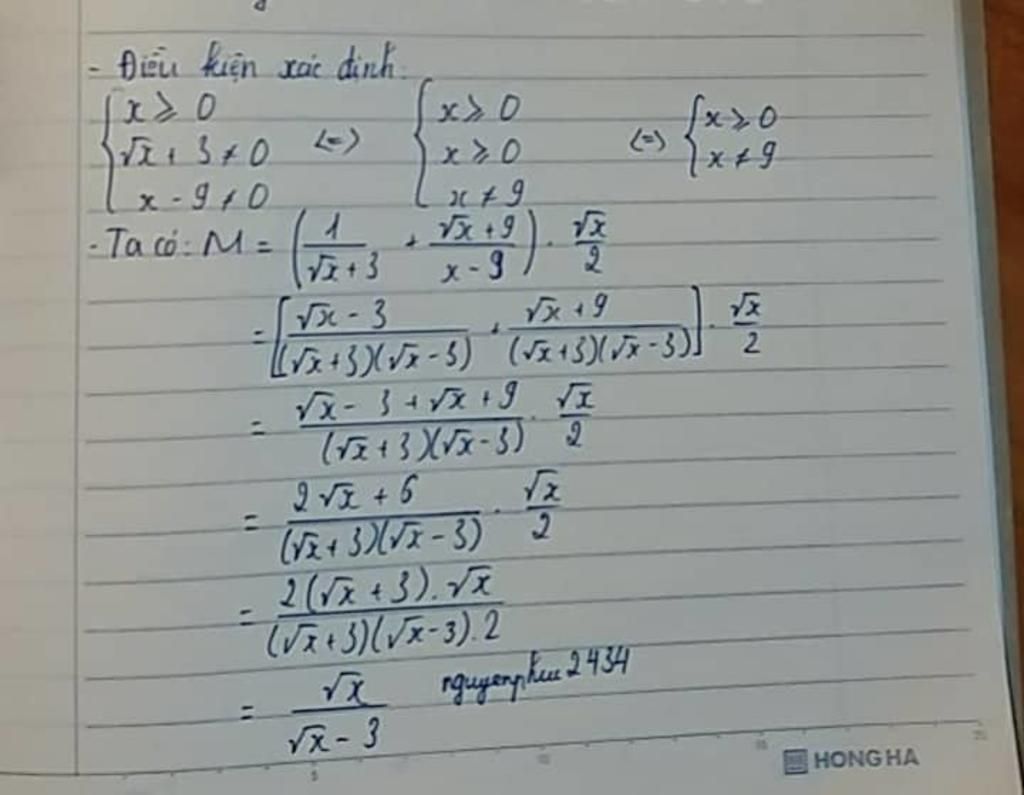 - Điều kiện xác định:
{x ⩾ 0 <=> {x ⩾ 0 <=> {x ⩾ 0
√x + 3 ≠ 0 x ⩾ 0 x ≠ 9
x - 9 ≠ 0 x ≠ 9
- Ta có: M = (1/(√x + 3) + (√x + 9)/(x - 9)) . √x/2
= [(√x - 3)/((√x + 3)(√x - 3)) + (√x + 9)/((√x + 3)(√x - 3))] . √x/2
= (√x - 3 + √x + 9)/((√x + 3)(√x - 3)) . √x/2
= (2√x + 6)/((√x + 3)(√x - 3)) . √x/2
= (2(√x + 3) . √x)/((√x + 3)(√x - 3) . 2)
= √x/(√x - 3)
5 10 15 20
HONG HA